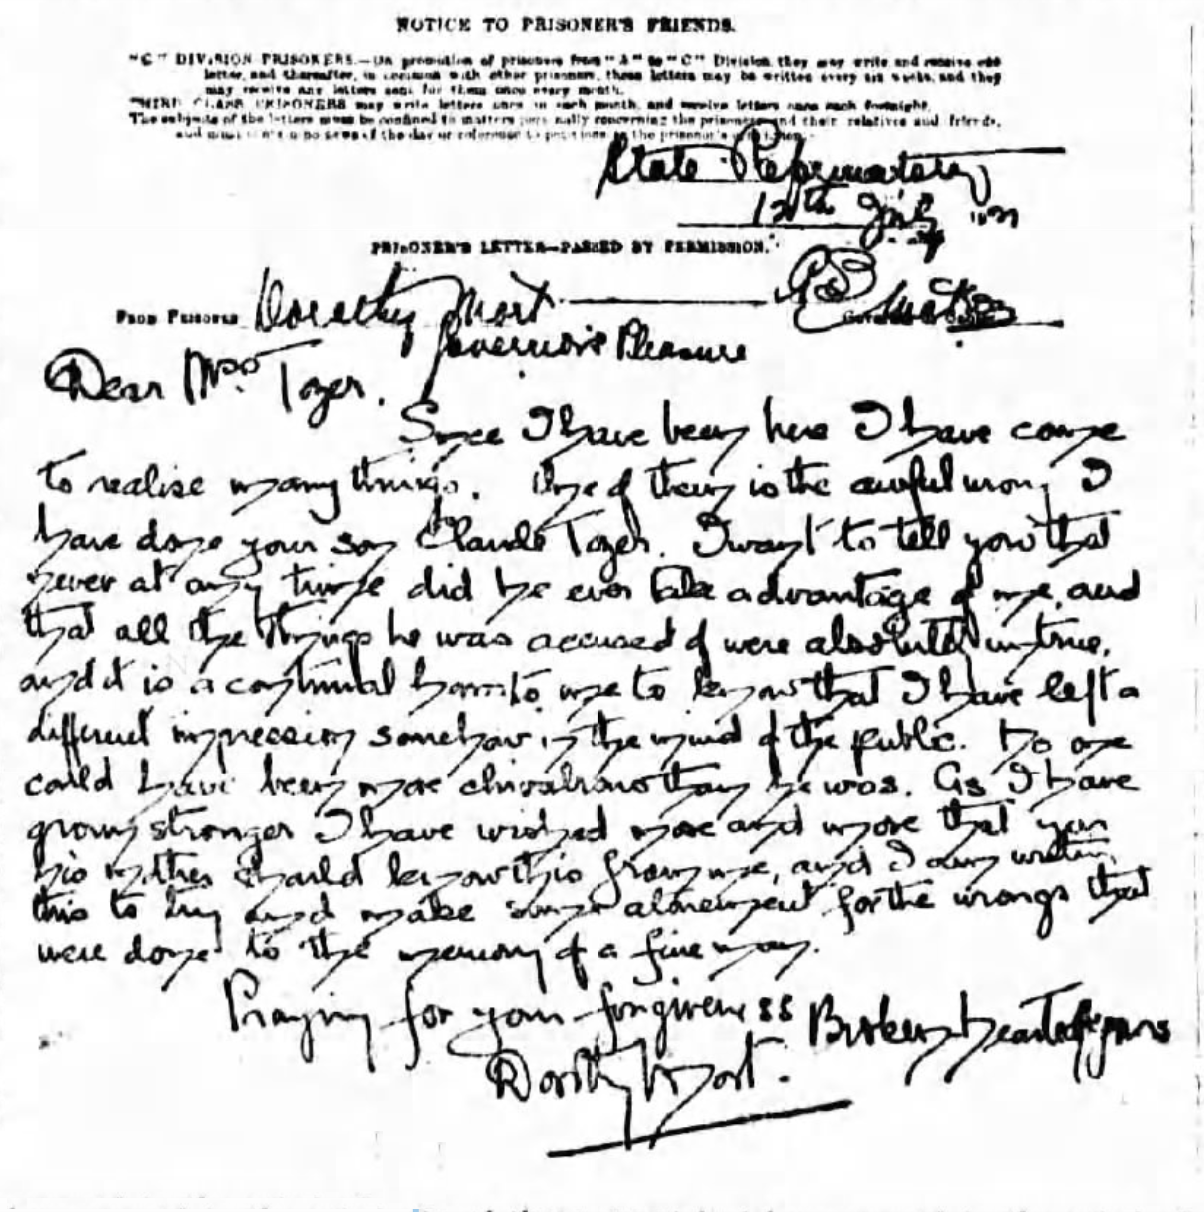 NOTICE TO PRISONER'S FRIENDS.
"C" DIVISION PRISONERS.—On promotion of prisoners from "A" to "C" Division, they may write and receive one
letter, and thereafter, in common with other prisoners, these letters may be written every six weeks, and they
may receive any letters sent for them once every month.
THIRD CLASS PRISONERS may write letters once in each month, and receive letters once each fortnight.
The subjects of the letters must be confined to matters personally concerning the prisoner and their relatives and friends,
and must contain no news of the day or reference to petitions on the prisoner's
State Reformatory
12th July
PRISONER'S LETTER—PASSED BY PERMISSION.
FROM PRISONER Dorothy Mort
Governor's Pleasure
Dear Mrs Tozer.
Since I have been here I have come
to realise many things. One of them is the awful wrong I
have done your son Claude Tozer. I want to tell you that
never at any time did he ever take advantage of me, and
that all the things he was accused of were absolutely untrue,
and it is a continual horror to me to know that I have left a
different impression somehow in the mind of the public. No one
could have been more chivalrous than he was. As I have
grown stronger I have wished more and more that you
his mother should know this from me, and I am writing
this to try and make some atonement for the wrongs that
were done to the memory of a fine man.
Praying for your forgiveness Broken heartedly yours
Dorothy Mort.